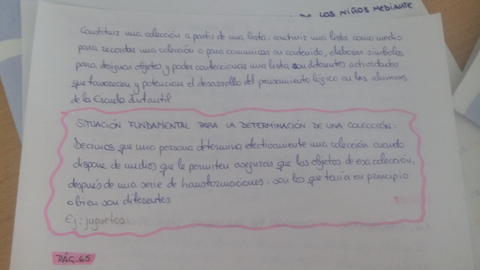 DE LOS NIÑOS MEDIANTE
Constituir una colección a partir de una lista, construir una lista como medio
para recordar una colección o para comunicar su contenido, elaborar símbolos
para designar objetos y poder confeccionar una lista son diferentes actividades
que favorecen y potencian el desarrollo del pensamiento lógico en los alumnos
de la Escuela Infantil
SITUACIÓN FUNDAMENTAL PARA LA DETERMINACIÓN DE UNA COLECCIÓN:
Decimos que una persona determina efectivamente una colección cuando
dispone de medios que le permiten asegurar que los objetos de esa colección,
después de una serie de transformaciones, son los que tenía en principio
o bien son diferentes
Ej: juguetes
PÁG. 65